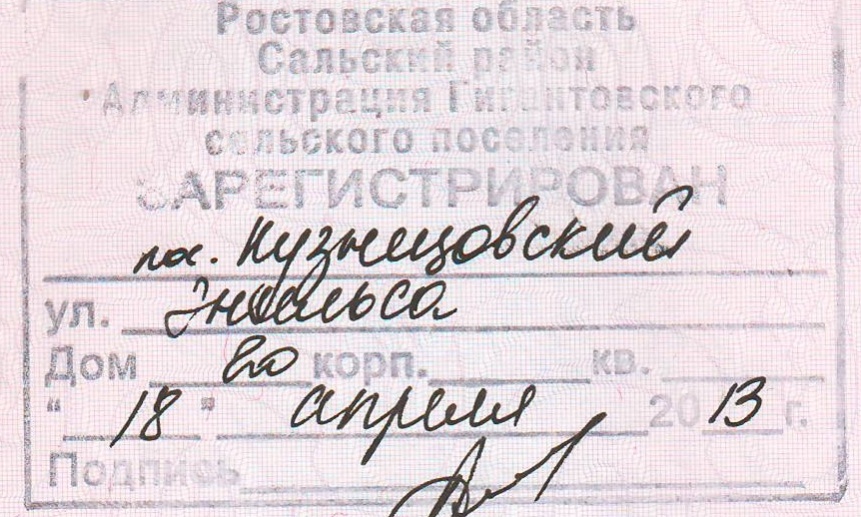 Ростовская область
Сальский район
Администрация Гигантовского
сельского поселения
ЗАРЕГИСТРИРОВАН
пос. Кузнецовский
ул. Энгельса
Дом 20 корп. кв.
"18" апреля 2013 г.
Подпись